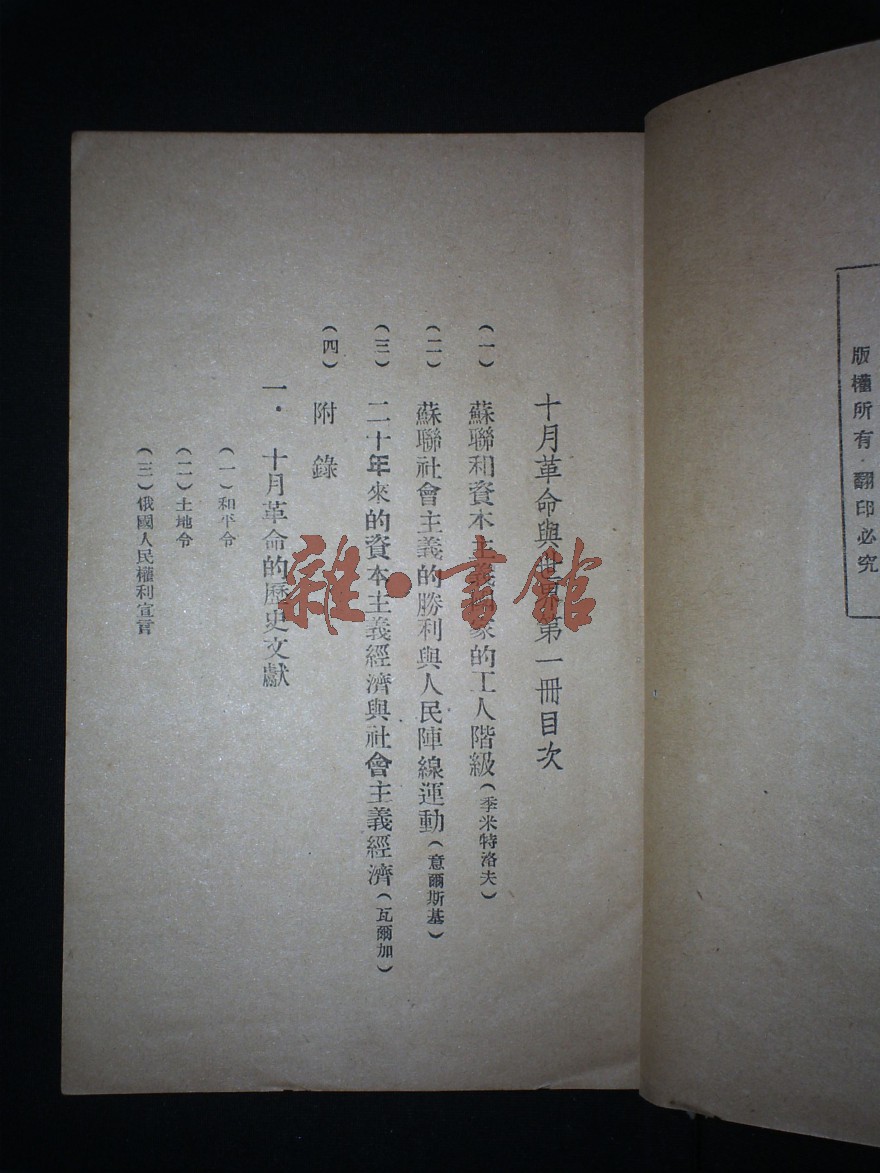 版權所有·翻印必究
十月革命與世界第一冊目次
(一) 蘇聯和資本主義國家的工人階級(季米特洛夫)
(二) 蘇聯社會主義的勝利與人民陣線運動(意爾斯基)
(三) 二十年來的資本主義經濟與社會主義經濟(瓦爾加)
(四) 附錄
一．十月革命的歷史文獻
(一)和平令
(二)土地令
(三)俄國人民權利宣言
雜·書館